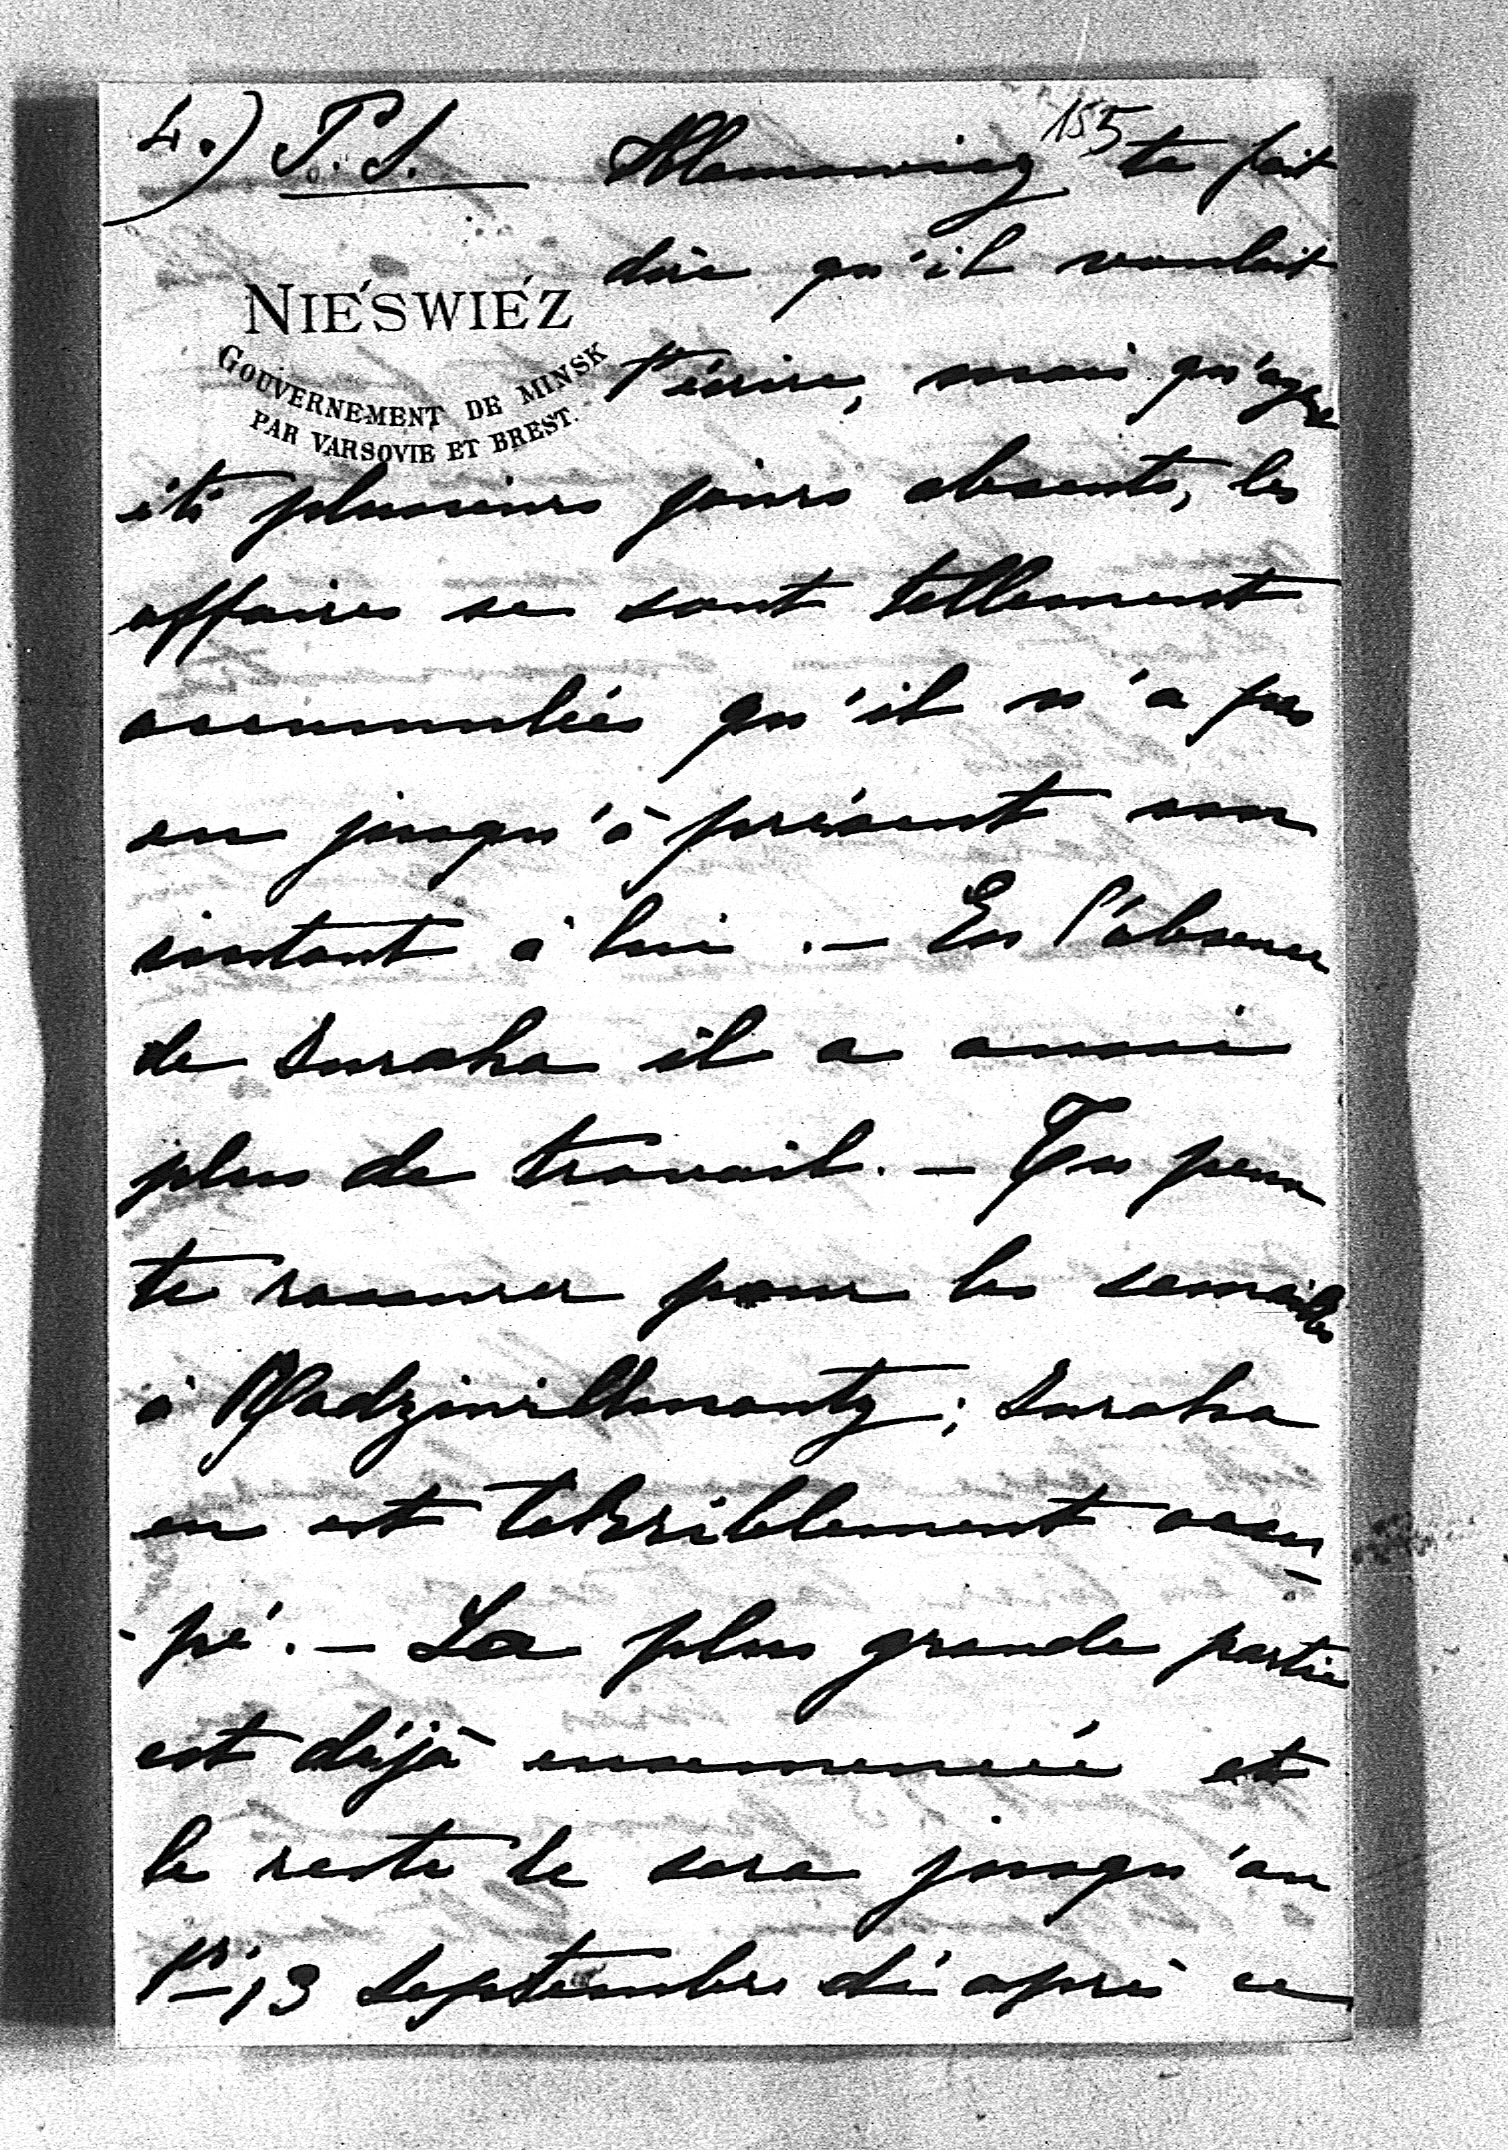 4.) P. S.
155
Alamowicz te fait
dire qu'il voulait
NIEŚWIEŻ
GOUVERNEMENT DE MINSK
PAR VARSOVIE ET BREST.
t'écrire, mais qu'ayant
été plusieurs jours absents, les
affaires se sont tellement
accumulées qu'il n'a pas
eu jusqu'à présent un
instant à lui. — En l'absence
de Suraha il a aussi
plus de travail. — Tu peux
te rassurer pour les semailles
à Radziwillmonty; Suraha
en est terriblement occu-
-pé. — La plus grande partie
est déjà ensemencée et
le reste le sera jusqu'au
1er/13 Septembre d'après ce